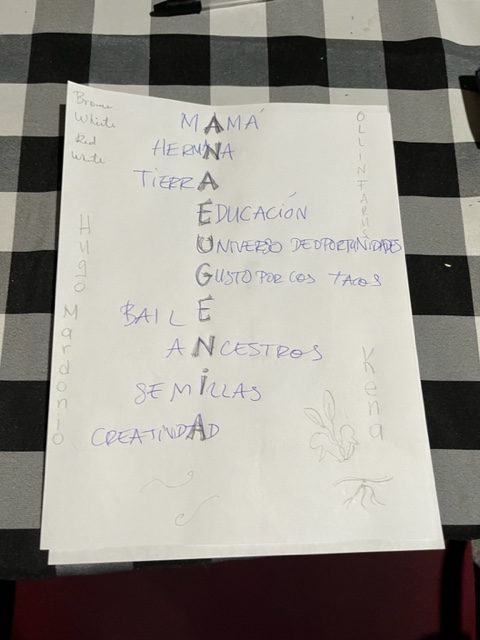 Brown
White
Red
White
MAMÁ
HERMANA
TIERRA
EDUCACIÓN
UNIVERSO DE OPORTUNIDADES
GUSTO POR LOS TACOS
BAILE
ANCESTROS
SEMiLLAS
CREATIVIDAD
Hugo Mardonio
OLLINTARUS
Kena